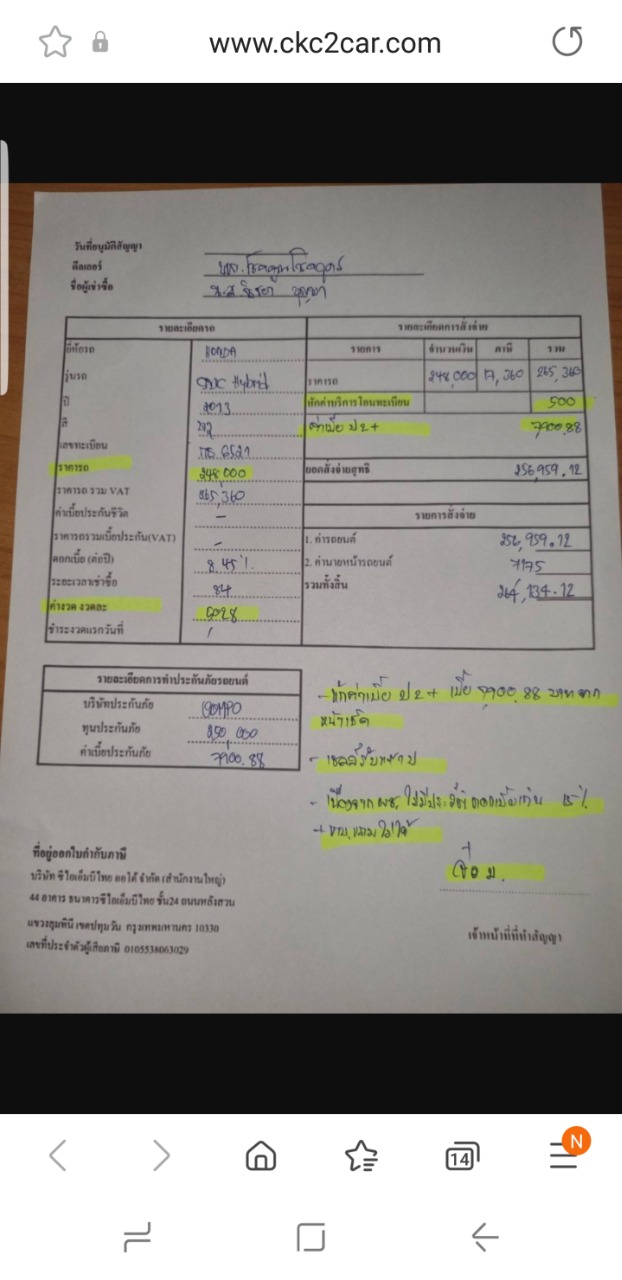 www.ckc2car.com
วันที่อนุมัติสัญญา
ดีลเลอร์
ชื่อผู้เช่าซื้อ น.ส.
รายละเอียดรถ รายละเอียดการสั่งจ่าย
ยี่ห้อรถ HONDA รายการ จำนวนเงิน ภาษี รวม
รุ่นรถ Hybrid ราคารถ 248,000 17,360 265,360
ปี 2013 หักค่าบริการโอนทะเบียน 500
สี ค่าเบี้ย ป 2+ 7900.88
เลขทะเบียน 6521
ราคารถ 248,000 ยอดสั่งจ่ายสุทธิ 256,959.12
ราคารถ รวม VAT 265,360
ค่าเบี้ยประกันชีวิต - รายการสั่งจ่าย
ราคารถรวมเบี้ยประกัน(VAT) - 1. ค่ารถยนต์ 256,959.12
ดอกเบี้ย (ต่อปี) 8.45 % 2. ค่านายหน้ารถยนต์ 7175
ระยะเวลาเช่าซื้อ 84 รวมทั้งสิ้น 264,134.12
ค่างวด งวดละ 5028
ชำระงวดแรกวันที่ /
รายละเอียดการทำประกันภัยรถยนต์
บริษัทประกันภัย SOMPO
ทุนประกันภัย 250,000
ค่าเบี้ยประกันภัย 7900.88
- หักค่าเบี้ย ป 2+ เบี้ย 7,900.88 บาท จาก
หน้าเช็ค
- เนื่องจาก ไม่มีประวัติ 15 %
ที่อยู่ออกใบกำกับภาษี
บริษัท ซีไอเอ็มบีไทย ออโต้ จำกัด (สำนักงานใหญ่)
44 อาคาร ธนาคารซีไอเอ็มบีไทย ชั้น24 ถนนหลังสวน
แขวงลุมพินี เขตปทุมวัน กรุงเทพมหานคร 10330
เลขที่ประจำตัวผู้เสียภาษี 0105538063029
เจ้าหน้าที่ที่ทำสัญญา
14
N